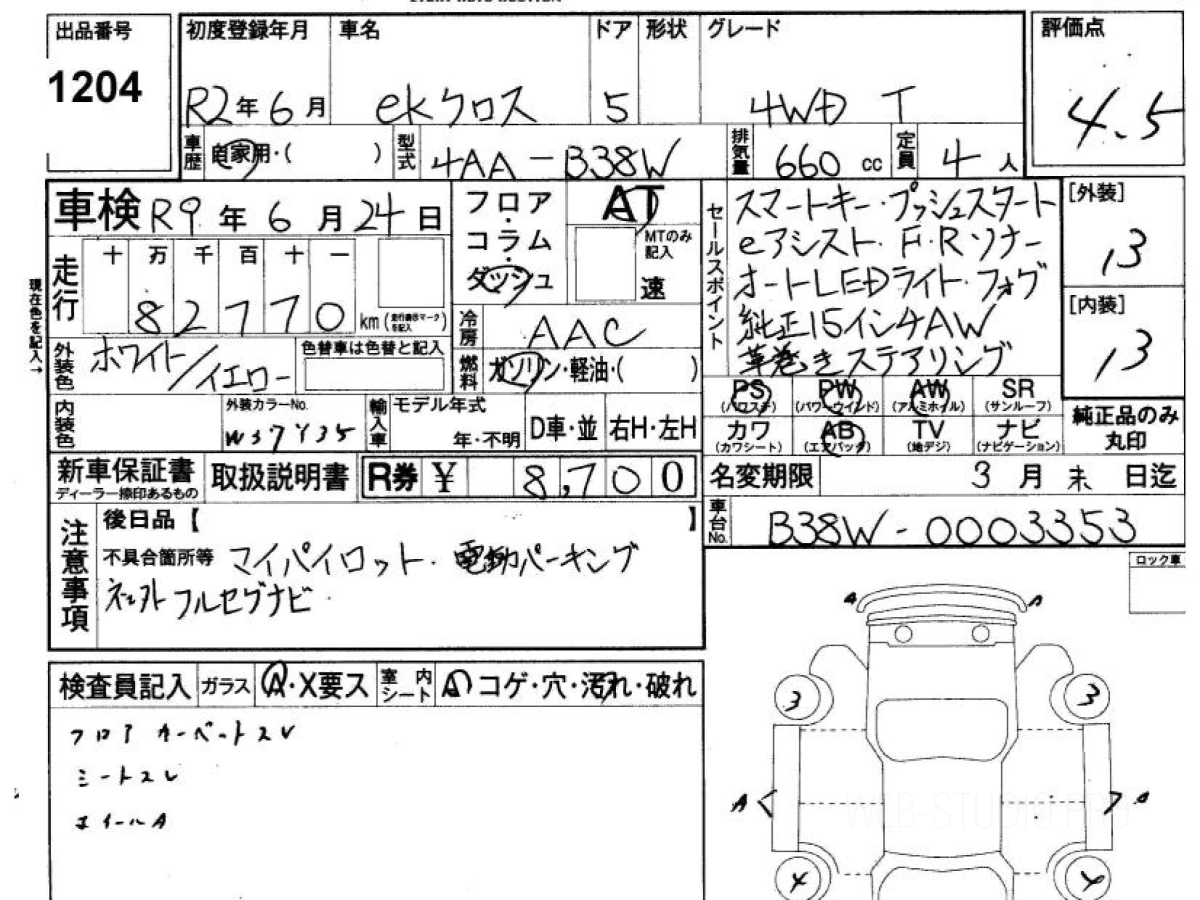 出品番号
1204
初度登録年月
R2年6月
車名
ekクロス
ドア
5
形状
グレード
4WD T
評価点
4.5
車歴
自家用・( )
型式
4AA-B38W
排気量
660 cc
定員
4人
車検 R9年6月24日
走行
十 万 千 百 十 一
82770 km (走行表示マークを記入)
現在色を記入→
外装色
ホワイト/イエロー
色替車は色替と記入
内装色
外装カラーNo.
W37Y35
フロア・コラム・ダッシュ
AT
MTのみ記入
速
冷房
AAC
燃料
ガソリン・軽油・( )
輸入車
モデル年式
年・不明
D車・並
右H・左H
セールスポイント
スマートキー・プッシュスタート
eアシスト・F・Rソナー
オートLEDライト・フォグ
純正15インチAW
革巻きステアリング
[外装]
13
[内装]
13
PS (パワステ)
PW (パワーウインド)
AW (アルミホイル)
SR (サンルーフ)
カワ (カワシート)
AB (エアバッグ)
TV (地デジ)
ナビ (ナビゲーション)
純正品のみ
丸印
新車保証書
ディーラー捺印あるもの
取扱説明書
R券 ¥ 8,700
名変期限
3月末日迄
車台No.
B38W-0003353
注意事項
後日品【 】
不具合箇所等 マイパイロット・電動パーキング
フルセグナビ
ロック車
検査員記入
ガラス
A・X要ス
室内シート
A コゲ・穴・汚れ・破れ
フロアカーペットスレ
シートスレ
ホイールA
A
A
3
3
A
A
4
4
WEB-STUDIO.PRO